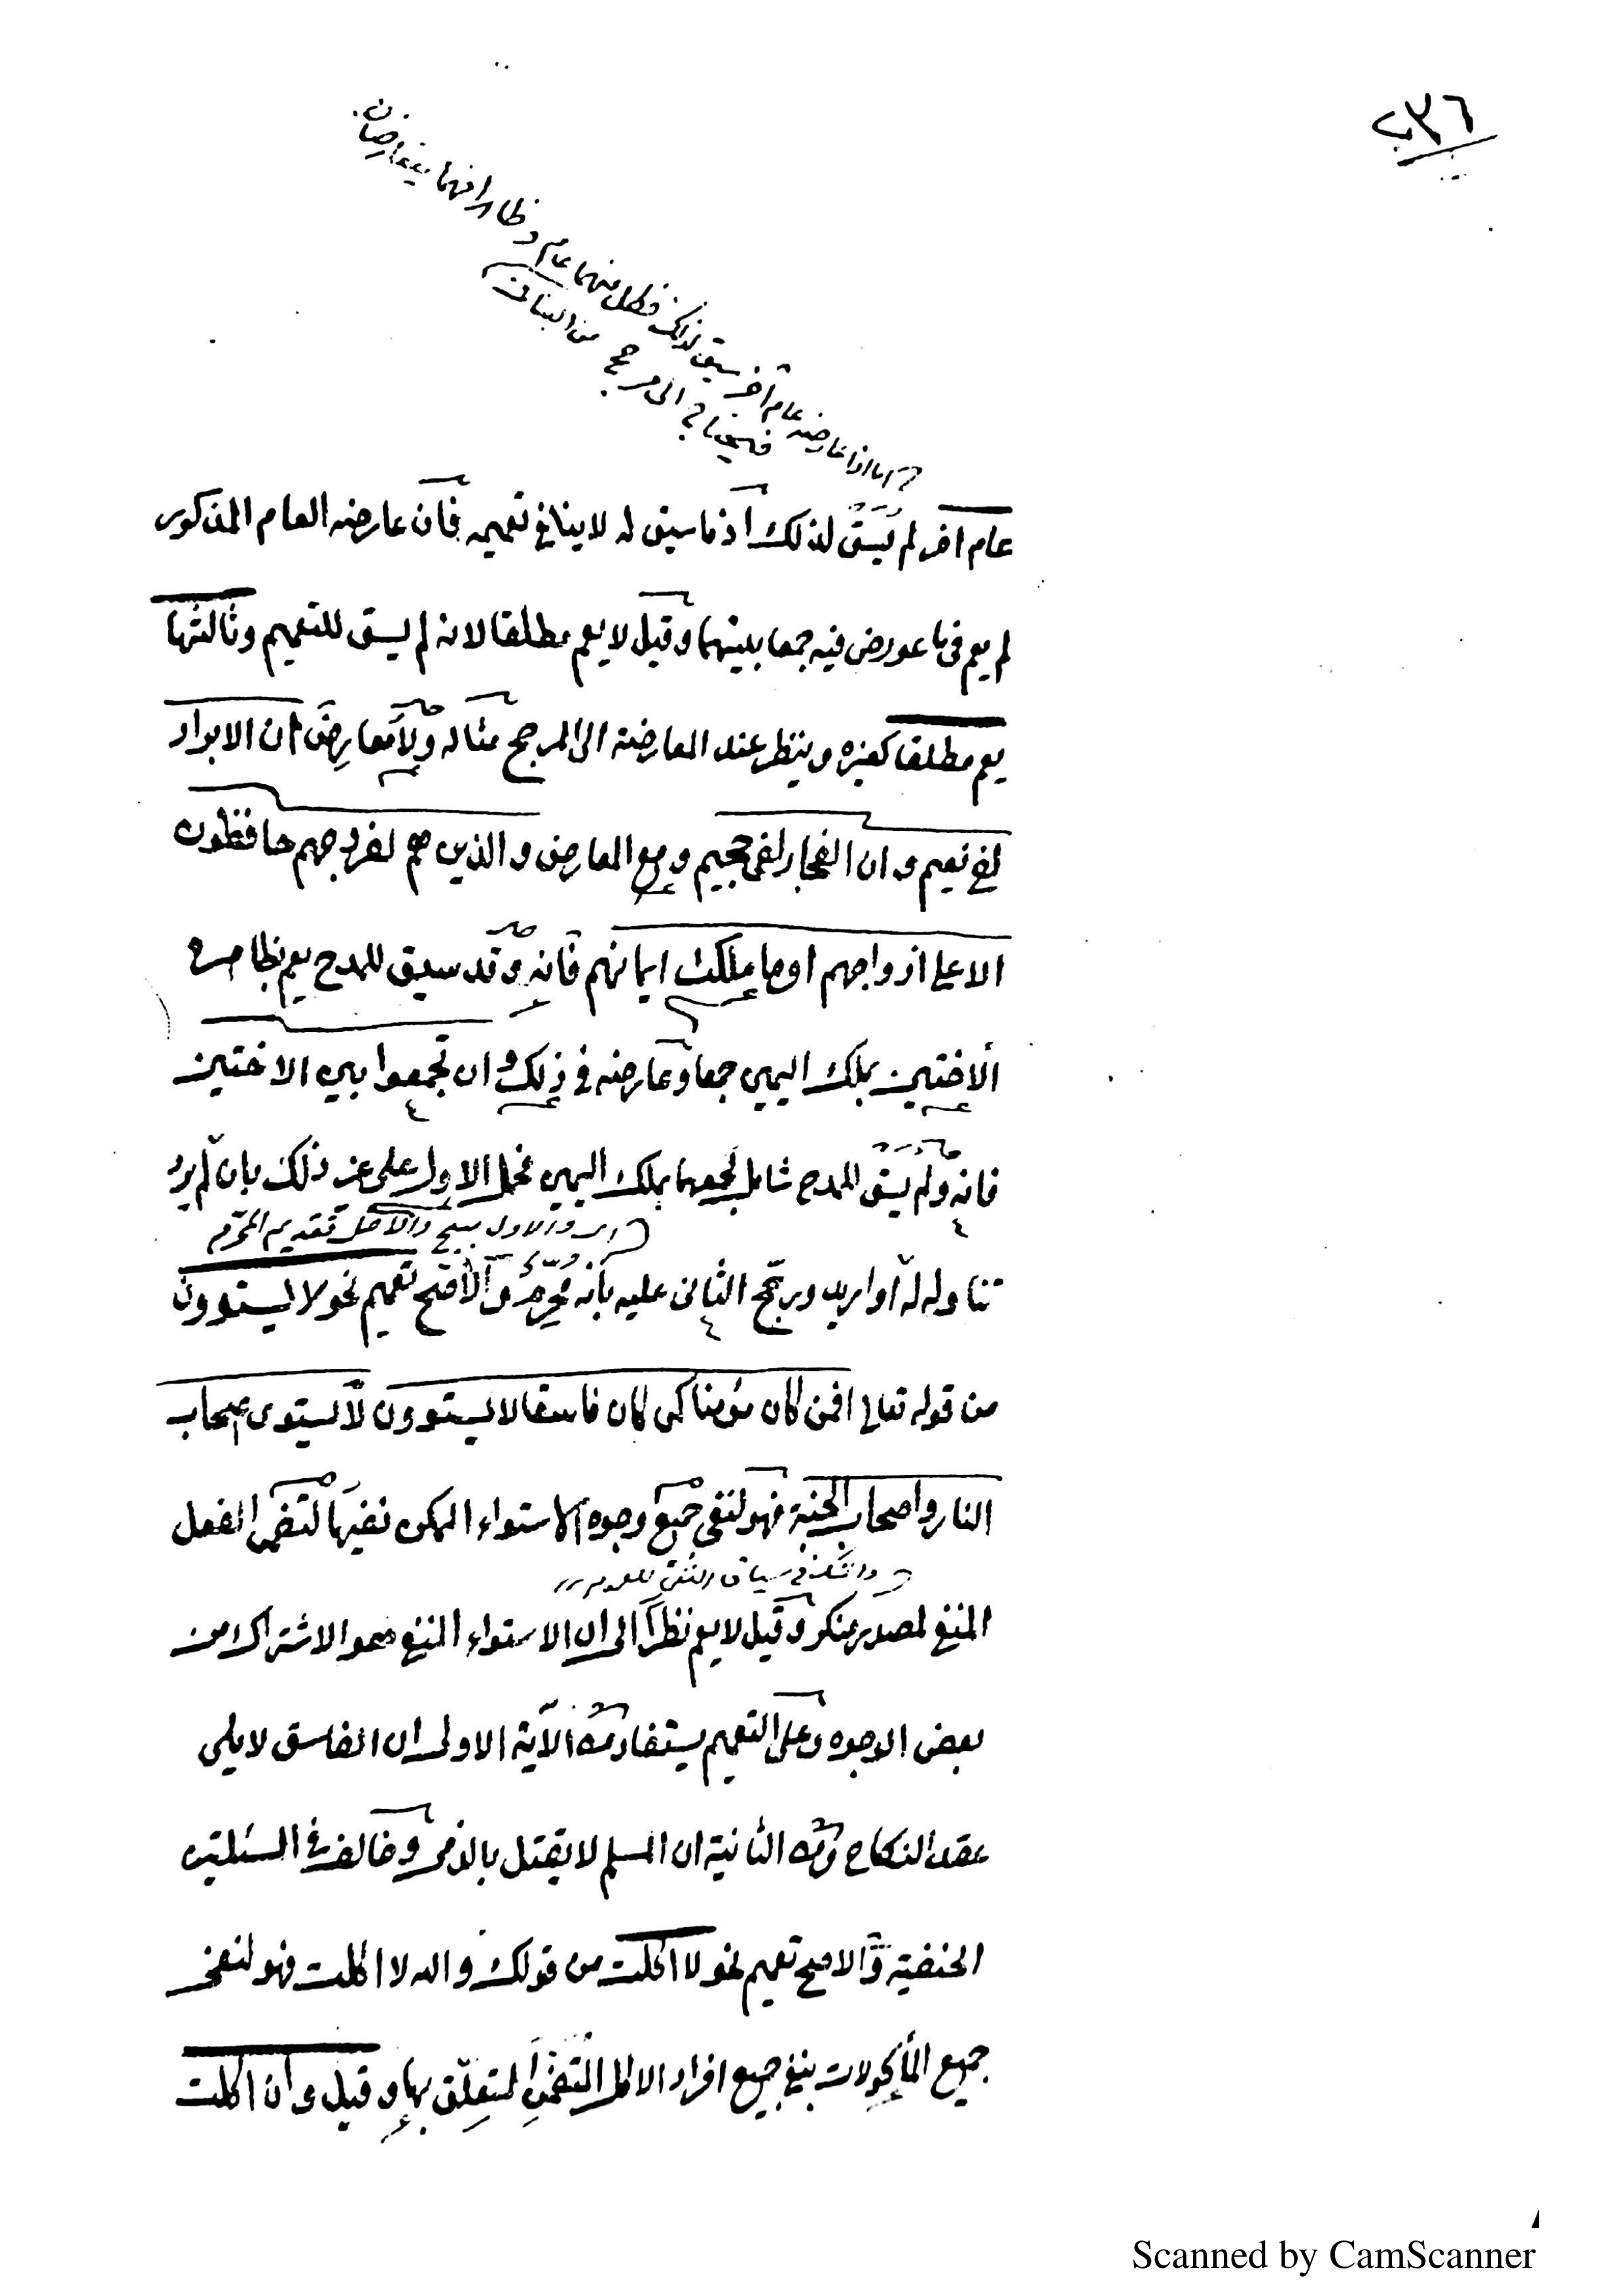 ٢٣٦
اما اذا عارضه عام آخر سيق لذلك فكل منهما عام وظاهر انهما يتعارضان
فيحتاج الى مرجح من البنانى
عام اخر لم يُسَق لذلك اذ ما سيق له لا ينافى تعميمه فان عارضه العام المذكور
لم يعم فى ما عورض فيه جمعا بينهما وقيل لا يعم مطلقا لانه لم يسق للتعميم وثالثها
يعم مطلقا كغيره وينظر عند المعارضة الى المرجح مثاله ولا معارِضَ ان الابرار
لفى نعيم وان الفجار لفى جحيم ومع المعارض والذين هم لفروجهم حافظون
الا على ازواجهم او ما ملكت ايمانهم فانه وقد سيق للمدح يعم بظاهره
الاختين بملك اليمين جمعا وعارضه فى ذلك وان تجمعوا بين الاختين
فانه ولم يُسَق للمدح شامل لجمعهما بملك اليمين فحمل الاول على غير ذلك بان لم يرد
اى والاول مبيح والاصل تقديم المحرّم
تناوله له او اريد ورجّح الثانى عليه بأنه مُحَرِّمٌ والاصح تعميم نحو لا يستوون
من قوله تعالى افمن كان مؤمنا كمن كان فاسقا لا يستوون لا يستوى اصحاب
النار واصحاب الجنة فهو لنفى جميع وجوه الاستواء الممكن نفيها لتضمن الفعل
والنكرة فى سياق النفى للعموم
المنفى لمصدر منكر وقيل لا يعم نظرا الى ان الاستواء المنفى هو الاشتراك من
بعض الوجوه وعلى التعميم يستفاد من الآية الاولى ان الفاسق لا يلى
عقد النكاح ومن الثانية ان المسلم لا يقتل بالذمى وخالف فى المسئلتين
الحنفية والاصح تعميم نحو لا اكلت من قولك والله لا اكلت فهو لنفى
جميع المأكولات بنفى جميع افراد الاكل المتضمن المتعلّق بها وقيل وان اكلت
Scanned by CamScanner